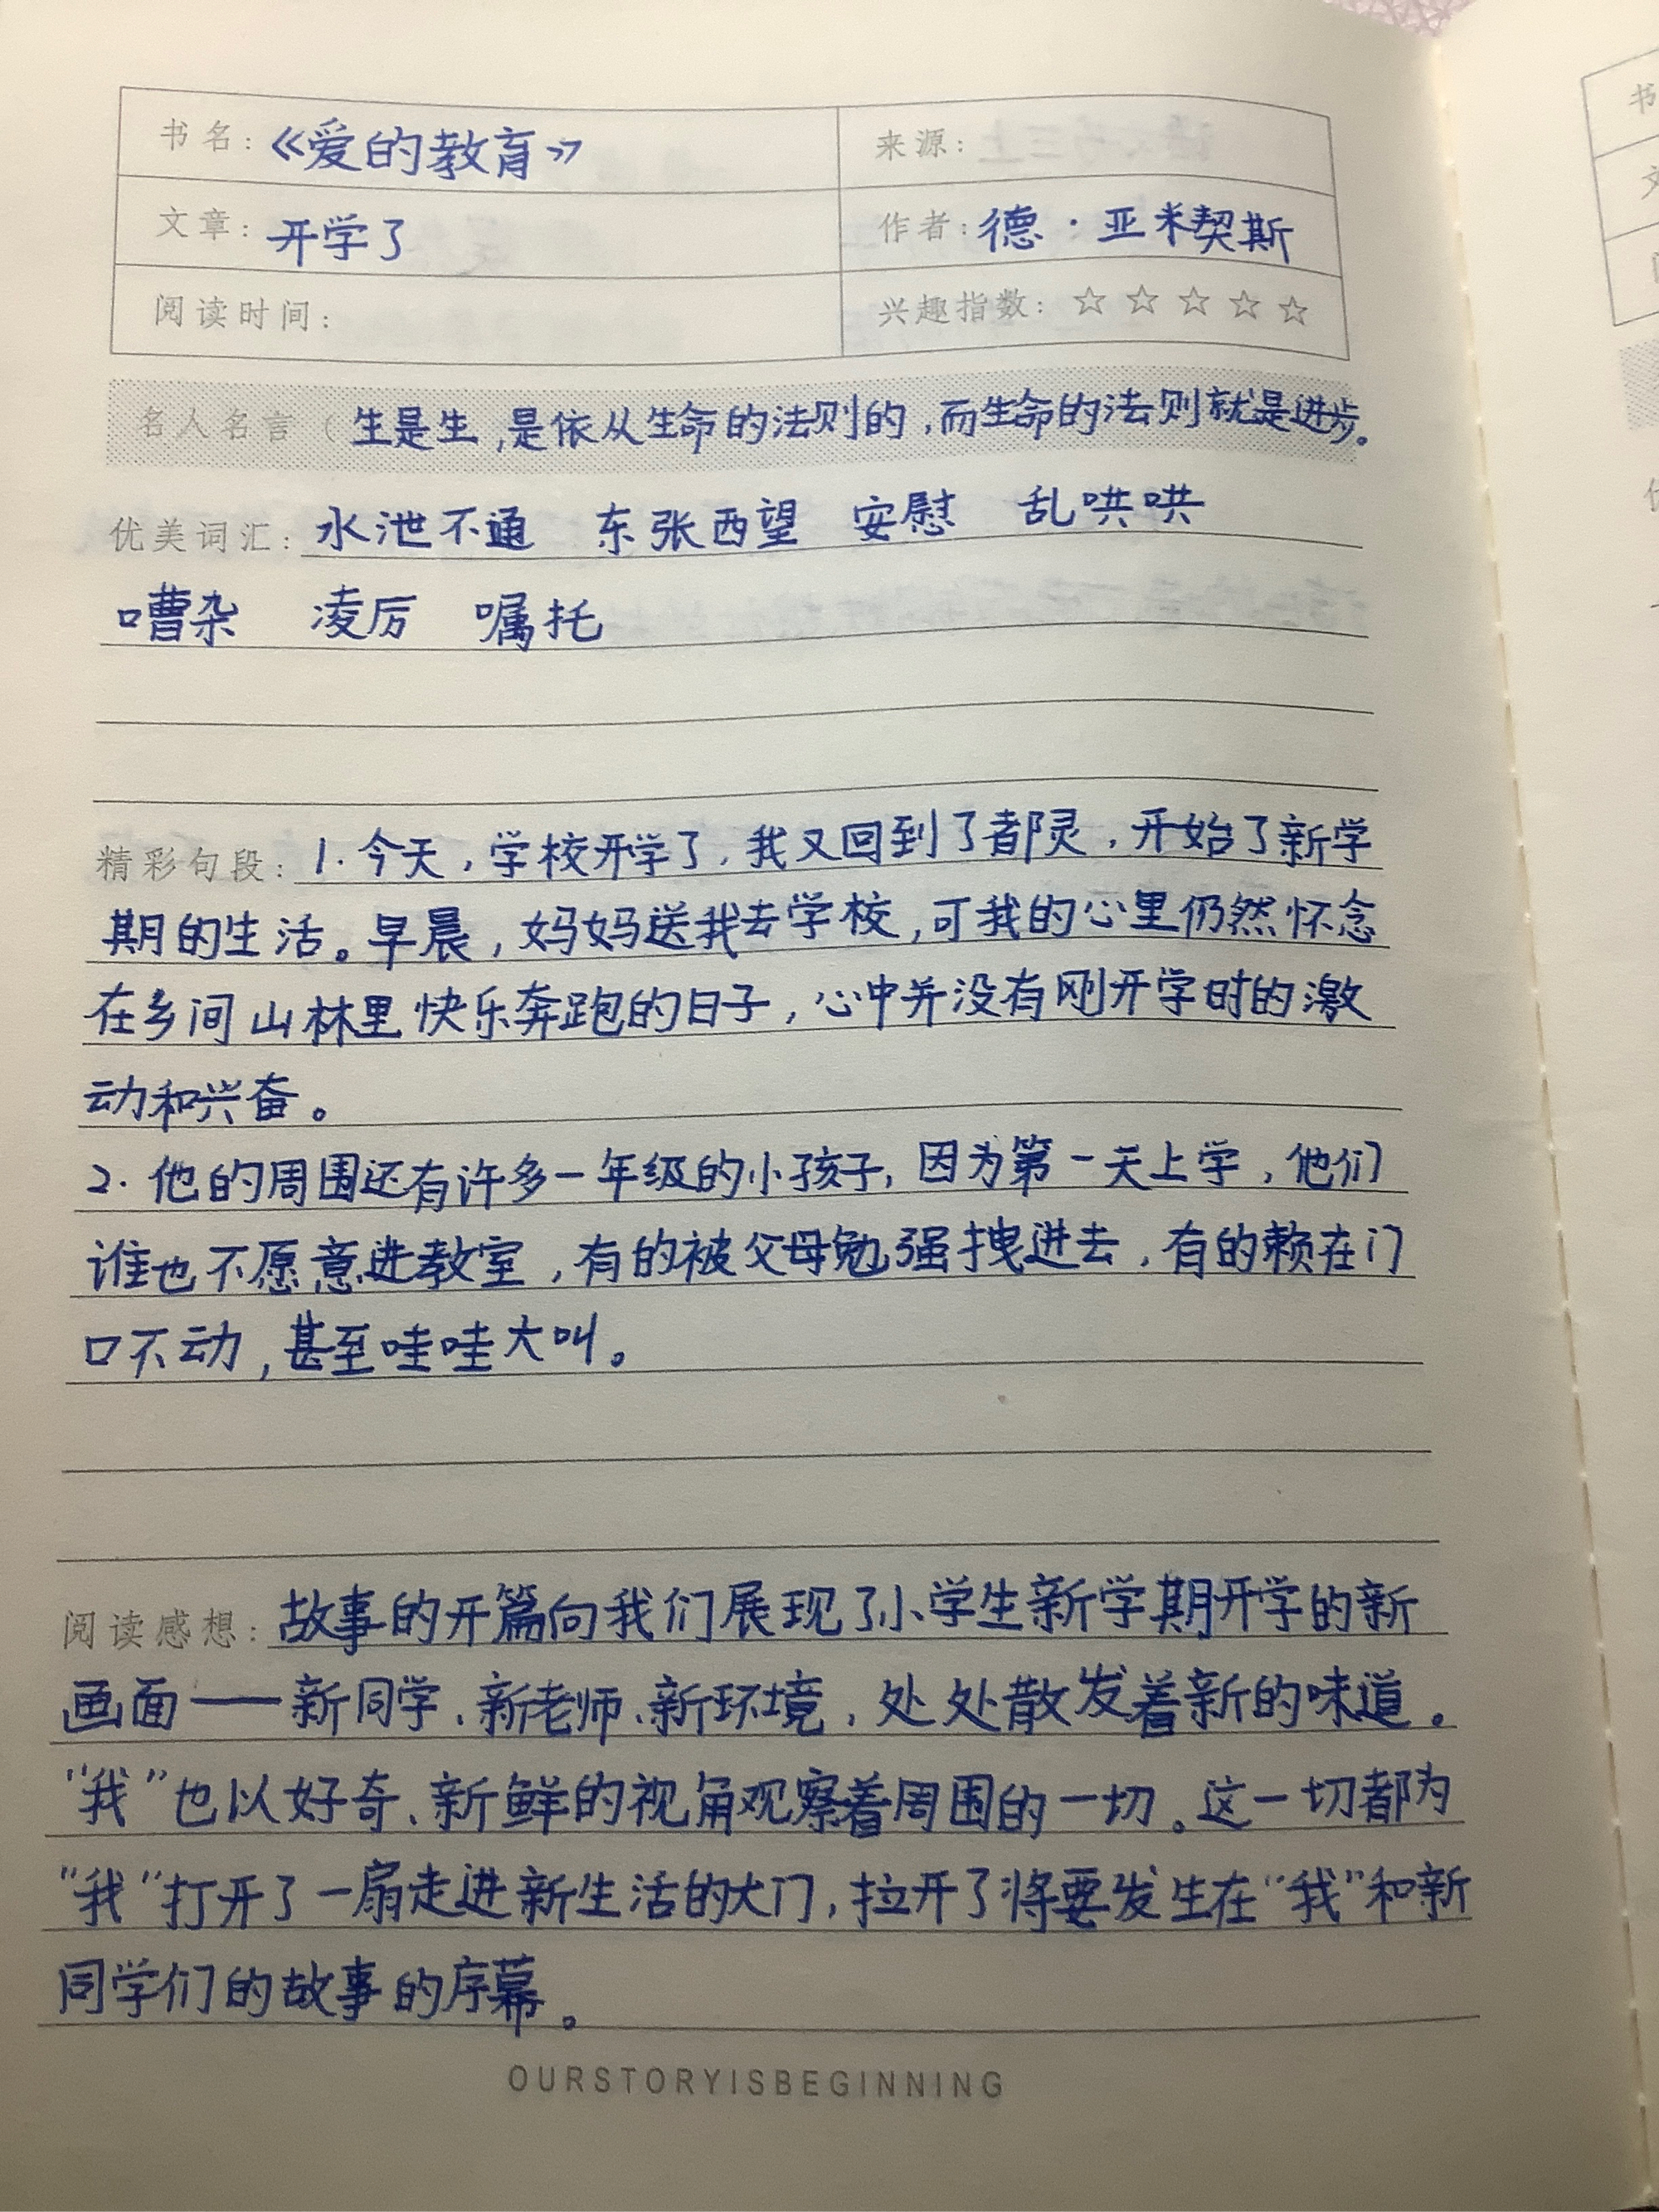 书名：《爱的教育》 来源：
文章：开学了 作者：德·亚米契斯
阅读时间： 兴趣指数：☆☆☆☆☆
名人名言（生是生，是依从生命的法则的，而生命的法则就是进步。
优美词汇：水泄不通 东张西望 安慰 乱哄哄
嘈杂 凌厉 嘱托
精彩句段：1.今天，学校开学了，我又回到了都灵，开始了新学
期的生活。早晨，妈妈送我去学校，可我的心里仍然怀念
在乡间山林里快乐奔跑的日子，心中并没有刚开学时的激
动和兴奋。
2.他的周围还有许多一年级的小孩子，因为第一天上学，他们
谁也不愿意进教室，有的被父母勉强拽进去，有的赖在门
口不动，甚至哇哇大叫。
阅读感想：故事的开篇向我们展现了小学生新学期开学的新
画面——新同学、新老师、新环境，处处散发着新的味道。
“我”也以好奇、新鲜的视角观察着周围的一切。这一切都为
“我”打开了一扇走进新生活的大门，拉开了将要发生在“我”和新
同学们的故事的序幕。
OURSTORYISBEGINNING
书